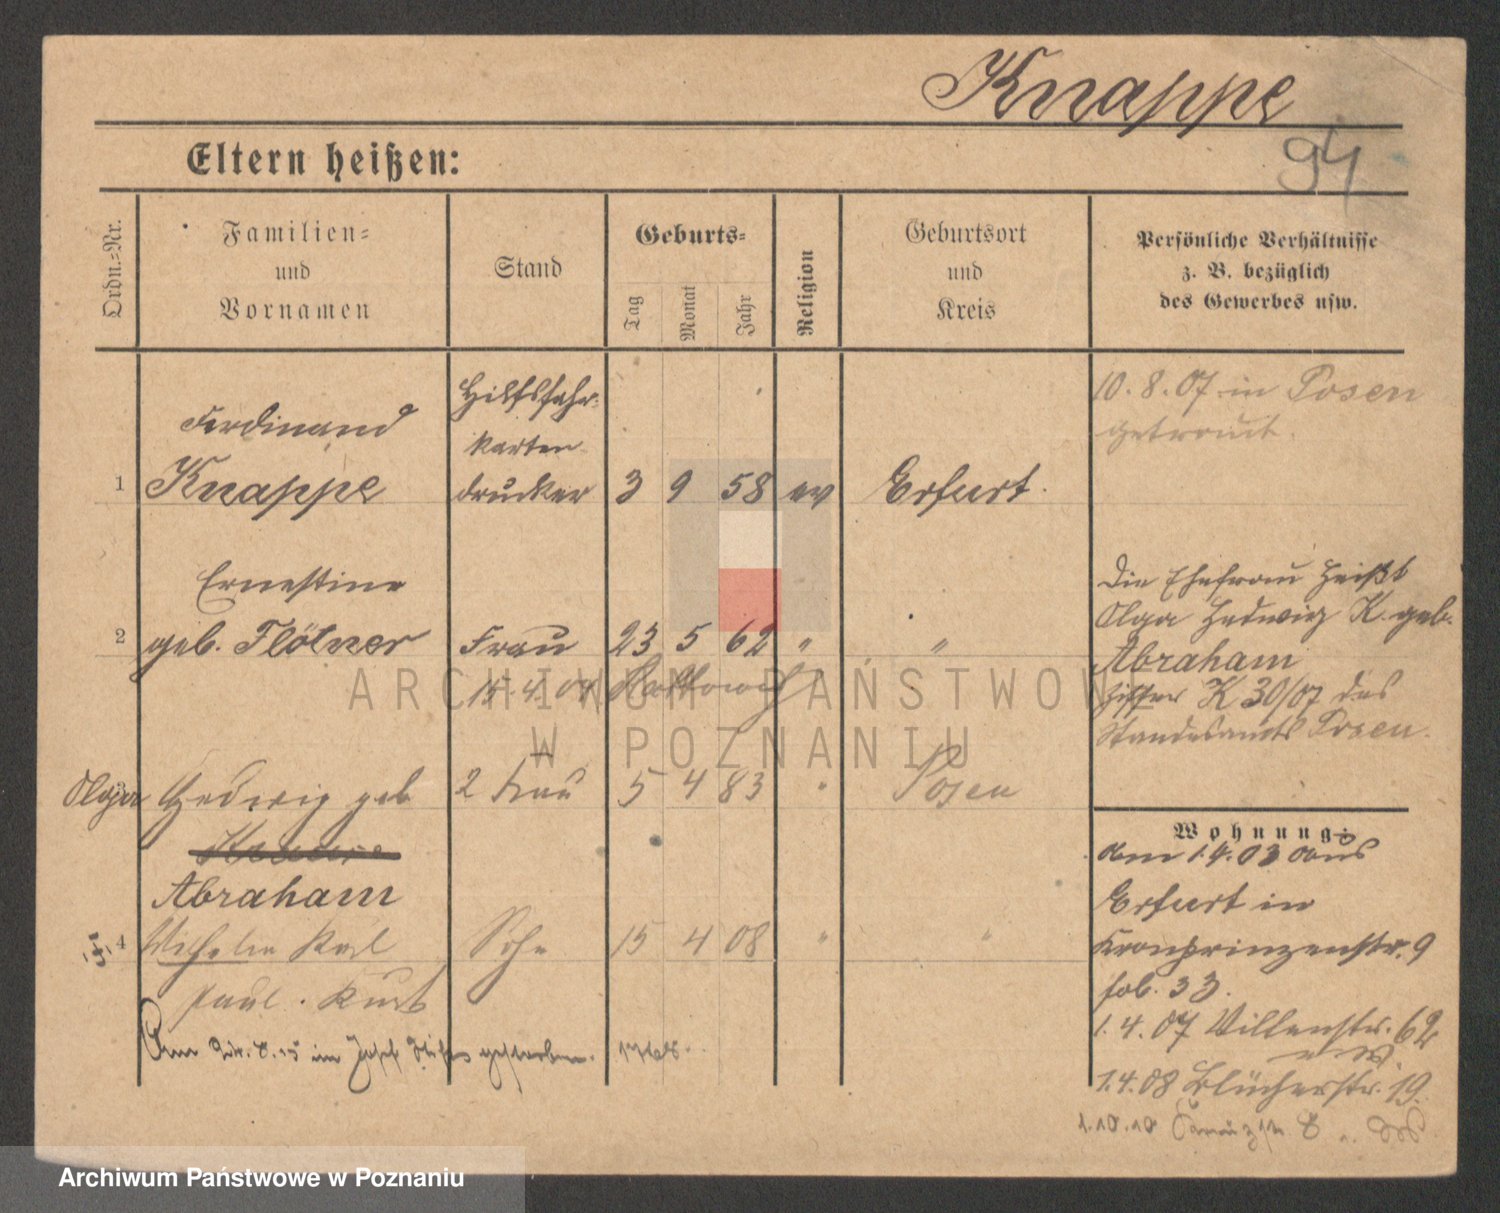 Knappe
94
Eltern heißen:
Ordn.-Nr.
Familien-
und
Vornamen
Stand
Geburts-
Tag
Monat
Jahr
Religion
Geburtsort
und
Kreis
Persönliche Verhältnisse
z. B. bezüglich
des Gewerbes usw.
Ferdinand
1 Knappe
Hilfsfahr-
karten
drucker
3 9 58 ev Erfurt.
10. 8. 07 in Posen
getraut.
Ernestine
2 geb. Flötner Frau 23 5 62 " "
15.4.04
Die Ehefrau heißt
Olga Hedwig K. geb.
Abraham
Ziffer K 30/07 des
Standesamts Posen.
Olga Hedwig geb 2 Frau 5 4 83 " Posen
Abraham
4 Wilhelm Karl Sohn 15 4 08 " "
Paul. Kurt
Am im Josef gestorben.
Wohnung:
am 1.4.03 aus
Erfurt in
Kronprinzenstr. 9
1.4.07 Villenstr. 62
1.4.08 Blücherstr. 19.
1.10.10
ARCHIWUM PAŃSTWOW
W POZNANIU
Archiwum Państwowe w Poznaniu